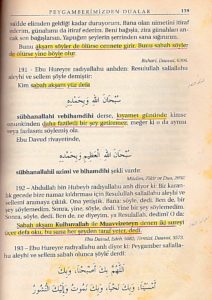 PEYGAMBERİMİZDEN DUALAR 119
sadite elimden geldiği kadar duruyorum. Bana olan nimetini itiraf
ederim, günahımı da itiraf ederim. Beni bağışla, zira günahları an-
cak sen bağışlarsın. Yaptığım şeylerin şerrinden sana sığınırım."
Bunu akşam söyler de ölürse cennete girir. Bunu sabah söyler
de ölürse yine böyle olur.
Buhari, Daavat, 6306.
191 - Ebu Hureyre radıyallahu anhden: Resulullah sallallahu
aleyhi ve sellem şöyle demiştir:
Kim sabah akşam yüz defa
سُبْحَانَ اللهِ وَبِحَمْدِهِ
sübhanallahi vebihamdihi derse, kıyamet gününde kimse
onunkinden daha faziletli bir şey getiremez, meğer ki o da aynı-
veya fazlasını söylemiş olsun.
Ebu Davud rivayetinde,
سُبْحَانَ اللهِ الْعَظِيمِ وَبِحَمْدِهِ
sübhanallahil azimi ve bihamdihi şekli vardır.
Müslim, Zikir ve Dua, 2692.
192 - Abdullah bin Hubeyb radıyallahu anh diyor ki: Biz karan-
lık gecede bize namaz kıldırması için Resulullah sallallahu aleyhi
ve sellem'i aramaya çıktık. Ona yetiştik. Bana: Söyle, dedi. Ben
bir şey söylemedim. Sonra: Söyle, dedi. Yine bir şey söylemedim.
Sonra, söyle, dedi. Ben de, ne diyeyim, ey Allah'ın Resulü, dedim.
O da:
Sabah akşam Kulhüvallah ile Muavvizeteyn'den iki sureyi
üçer defa oku, bu sana her şeyden yana yeter, dedi.
Ebu Davud, Edeb, 5082; Tirmizi, Daavat, 3575.
193 - Ebu Hureyre radıyallahu anh diyor ki: Peygamber sallalla-
hu aleyhi ve sellem sabah olunca şöyle derdi:
اللَّهُمَّ بِكَ أَصْبَحْنَا، وَبِكَ
نَحْيَا، وَبِكَ نَمُوتُ وَإِلَيْكَ النُّشُورُ